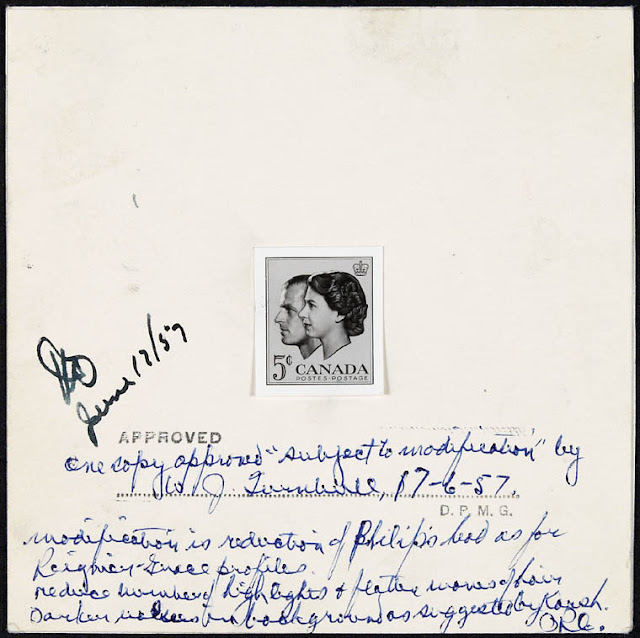 5¢ CANADA
POSTES-POSTAGE
June 17/57
APPROVED
One copy approved "subject to modification" by
W. J. Turnbull, 17-6-57.
D. P. M. G.
modification is reduction of Philip's head as for
Reignier-Grace profiles.
reduce number of highlights & flatten waves of hair
Darker values in background as suggested by Karsh.